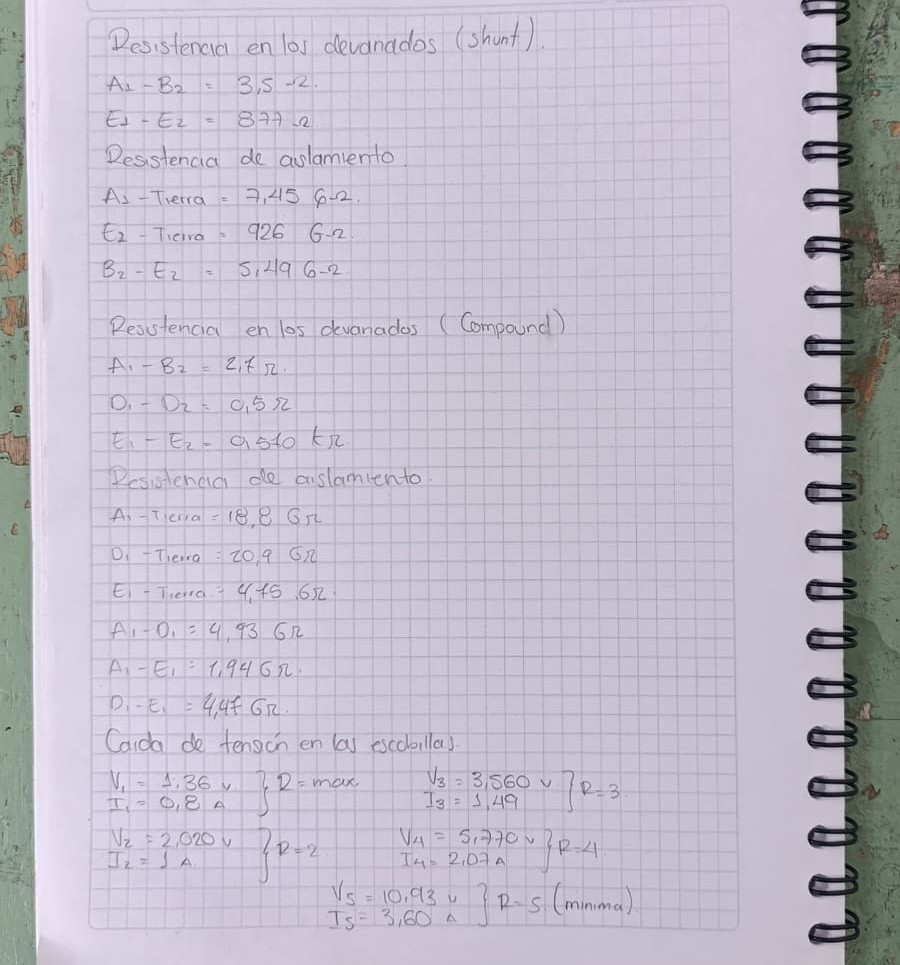 Resistencia en los devanados (shunt).
A1 - B2 = 3,5 Ω.
E1 - E2 = 877 Ω
Resistencia de aislamiento.
A1 - Tierra = 7,45 GΩ.
E2 - Tierra = 926 GΩ.
B2 - E2 = 5,49 GΩ
Resistencia en los devanados (Compound)
A1 - B2 = 2,7 Ω.
D1 - D2 = 0,5 Ω
E1 - E2 = 0,570 kΩ
Resistencia de aislamiento.
A1 - Tierra = 18,8 GΩ
D1 - Tierra = 20,9 GΩ
E1 - Tierra = 4,75 GΩ
A1 - D1 = 4,93 GΩ
A1 - E1 = 1,94 GΩ.
D1 - E1 = 4,47 GΩ.
Caida de tensión en las escobillas.
V1 = 1,36 v } R = max. V3 = 3,560 v } R = 3.
I1 = 0,8 A I3 = 1,49
V2 = 2,020 v } R = 2 V4 = 5,770 v } R = 4
I2 = 1 A I4 = 2,07 A
V5 = 10,93 v } R = 5 (minima)
I5 = 3,60 A